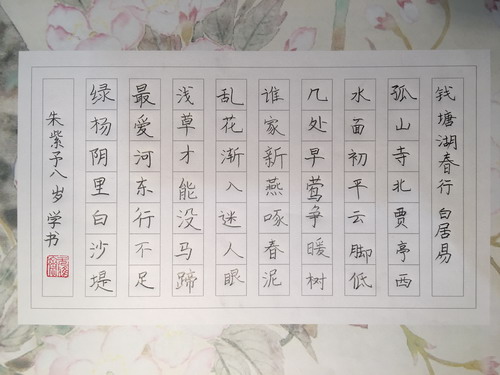 钱塘湖春行 白居易
孤山寺北贾亭西
水面初平云脚低
几处早莺争暖树
谁家新燕啄春泥
乱花渐入迷人眼
浅草才能没马蹄
最爱河东行不足
绿杨阴里白沙堤
朱紫予八岁学书